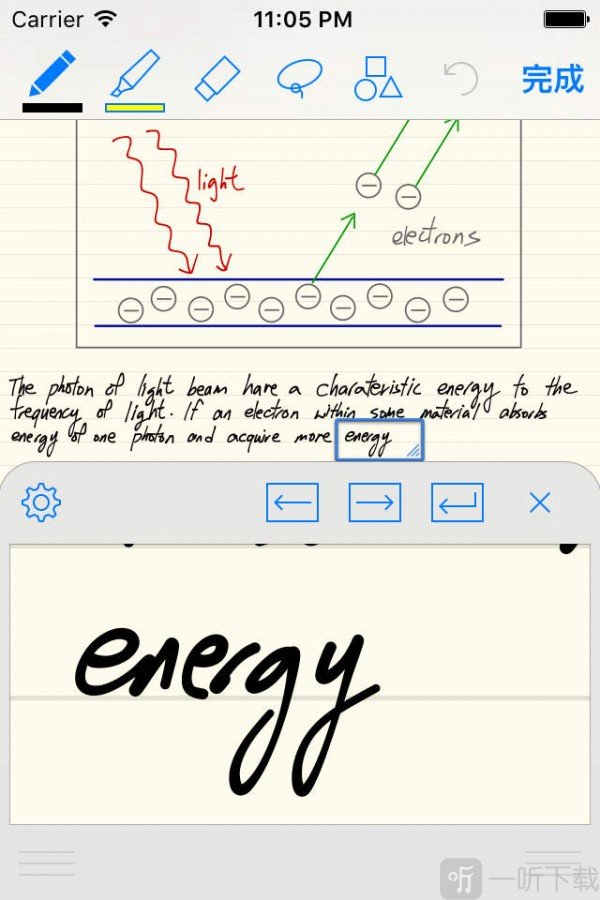 Carrier 11:05 PM
完成
light
electrons
The photon of light beam have a charateristic energy to the
frequency of light. If an electron within some material absorbs
energy of one photon and acquire more energy
energy
一听下载